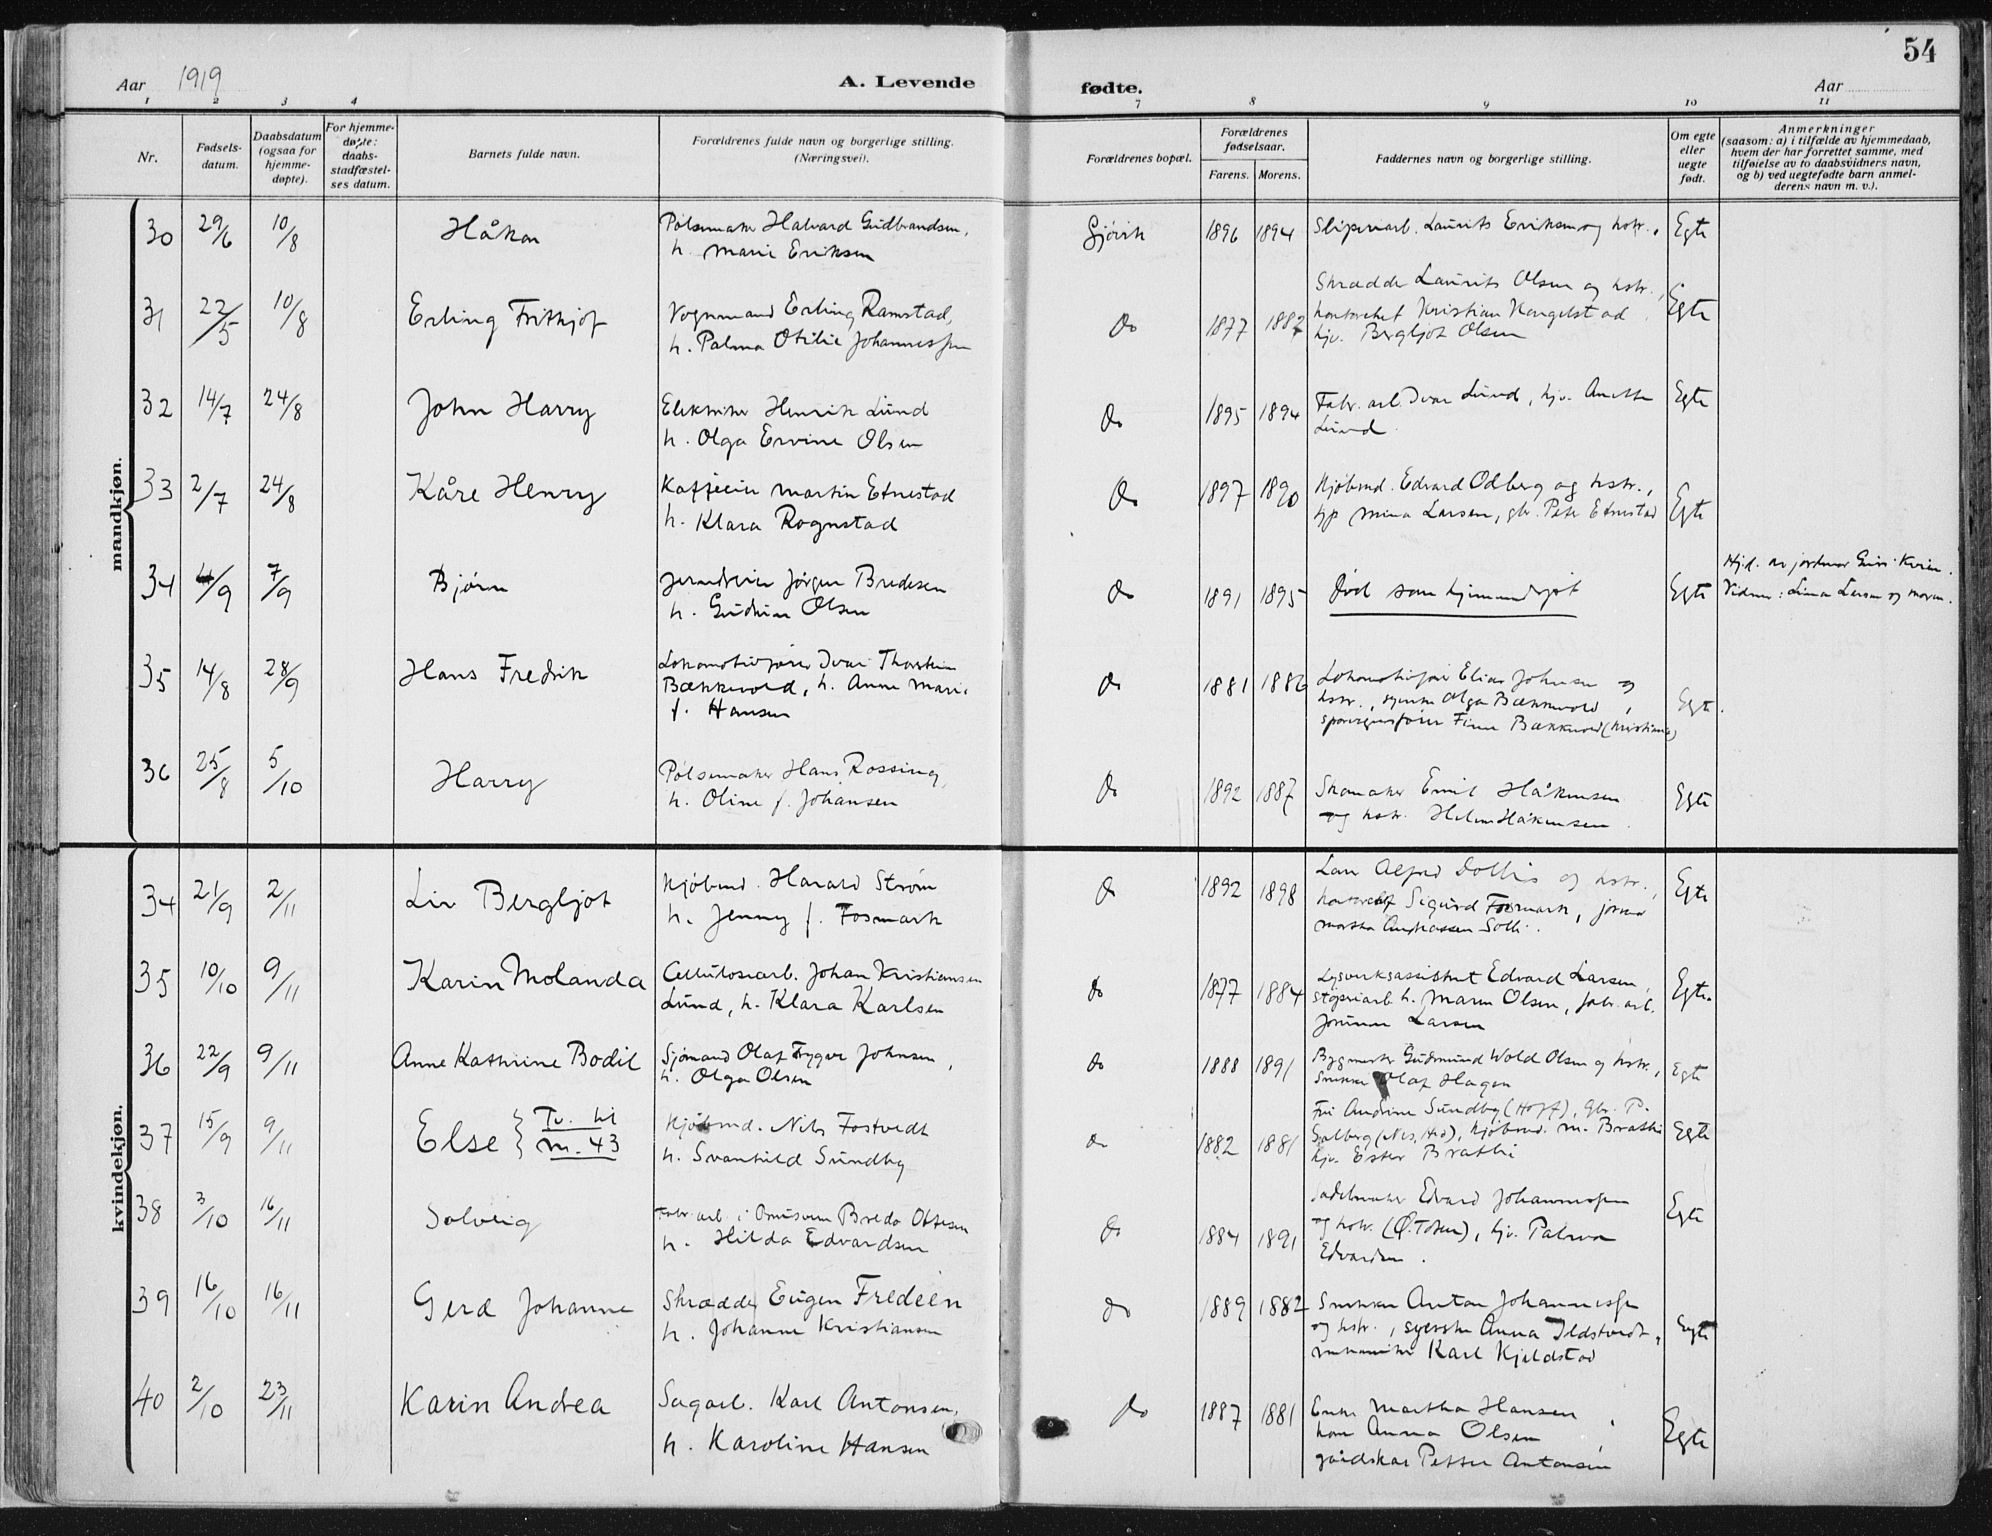 54
Aar 1919 A. Levende fødte. Aar
1 2 3 4 7 8 9 10 11
Nr.
Fødsels-
datum.
Daabsdatum
(ogsaa for
hjemme-
døpte).
For hjemme-
døpte:
daabs-
stadfæstel-
ses datum.
Barnets fulde navn.
Forældrenes fulde navn og borgerlige stilling.
(Næringsvei).
Forældrenes bopæl.
Forældrenes
fødselsaar.
Farens. Morens.
Faddernes navn og borgerlige stilling.
Om egte
eller
uegte
født.
Anmerkninger
(saasom: a) i tilfælde av hjemmedaab,
hvem der har forrettet samme, med
tilføielse av to daabsvidners navn,
og b) ved uegtefødte barn anmel-
derens navn m. v.).
mandkjøn.
30 29/6 10/8 Håkon
Pølsemaker Halvard Gudbrandsen,
h. Marie Eriksen
Gjøvik 1896 1894
Sliperiarb. Laurits Eriksen og hstr.,
Egte
31 22/5 10/8 Erling Frithjof
Vognmand Erling Ramstad,
h. Palma Otilie Johannessen
do 1877 1882
Skrædder Laurits Olsen og hstr.,
Kristian
hjv. Bergljot Olsen
Egte
32 14/7 24/8 John Harry
Elektriker Henrik Lund
h. Olga Ervine Olsen
do 1895 1894
Fabr. arb. Ivar Lund, hjv. Anette
Lund.
Egte
33 2/7 24/8 Kåre Henry
Kafeeier Martin Etnestad
h. Klara Rognstad
do 1897 1890
Kjøbmd. Edvard Odberg og hstr.,
Mina Larsen, gbr. Peter Etnestad
Egte
34 4/9 7/9 Bjørn
Jerndreier Jørgen Bredesen
h. Gudrun Olsen
do 1891 1895
Død som hjemmedøpt
Egte
Hj.d. av jordmor
Vidner: Lina Larsen og moren.
35 14/8 28/9 Hans Fredrik
Lokomotivfører Ivar Thorstein
Bækkevold, h. Anne Marie
f. Hansen
do 1881 1886
Lokomotivfører Elias Johnsen og
hstr., Olga Bækkevold,
Finn Bækkevold (Kristiania)
Egte.
36 25/8 5/10 Harry
Pølsemaker Hans Rossing,
h. Oline f. Johansen
do 1892 1887
Skomaker Emil Håkensen
og hstr. Helene Håkensen.
Egte
kvindekjøn.
34 21/9 2/11 Liv Bergljot
Kjøbmd. Harald Strøm
h. Jenny f. Fosmark
do 1892 1898
Alfred Dollis og hstr.,
Sigurd Fosmark,
Martha Andreassen Solli.
Egte
35 10/10 9/11 Karin Molanda
Cellulosearb. Johan Kristiansen
Lund, h. Klara Karlsen
do 1877 1884
Lysverksassistent Edvard Larsen,
h. Maren Olsen, fabr. arb.
Larsen
Egte.
36 22/9 9/11 Anne Kathrine Bodil
Sjømand Olaf Trygve Johnsen,
h. Olga Olsen
do 1888 1891
Bygmester Gudmund Wold Olsen og hstr.,
Snekker Olaf Hagen
Egte
37 15/9 9/11 Else } Tv. til
m. 43
Kjøbmd. Nils Fostvedt
h. Svanhild Sundby
do 1882 1881
Andrine Sundby (Hoff), Gbr. P.
Solberg (Nes, Hed), Kjøbmd. M. Bratlie
hjv. Ester Bratlie
Egte
38 3/10 16/11 Solveig
Fabr. arb. i Bredo Ottesen
h. Hilda Edvardsen
do 1884 1891
Sadelmaker Edvard Johannessen
og hstr. (Ø. Toten), hjv. Palma
Edvardsen.
Egte
39 16/10 16/11 Gerd Johanne
Skrædder Eugen Fredeen
h. Johanne Kristiansen
do 1889 1882
Snekker Anton Johannessen
og hstr., syerske Anna Ildstvedt,
mekaniker Karl Kjeldstad
Egte
40 2/10 23/11 Karin Andrea
Sagarb. Karl Antonsen,
h. Karoline Hansen
do 1887 1881
Enke Martha Hansen,
Anna Olsen,
gårdskar Petter Antonsen
Egte